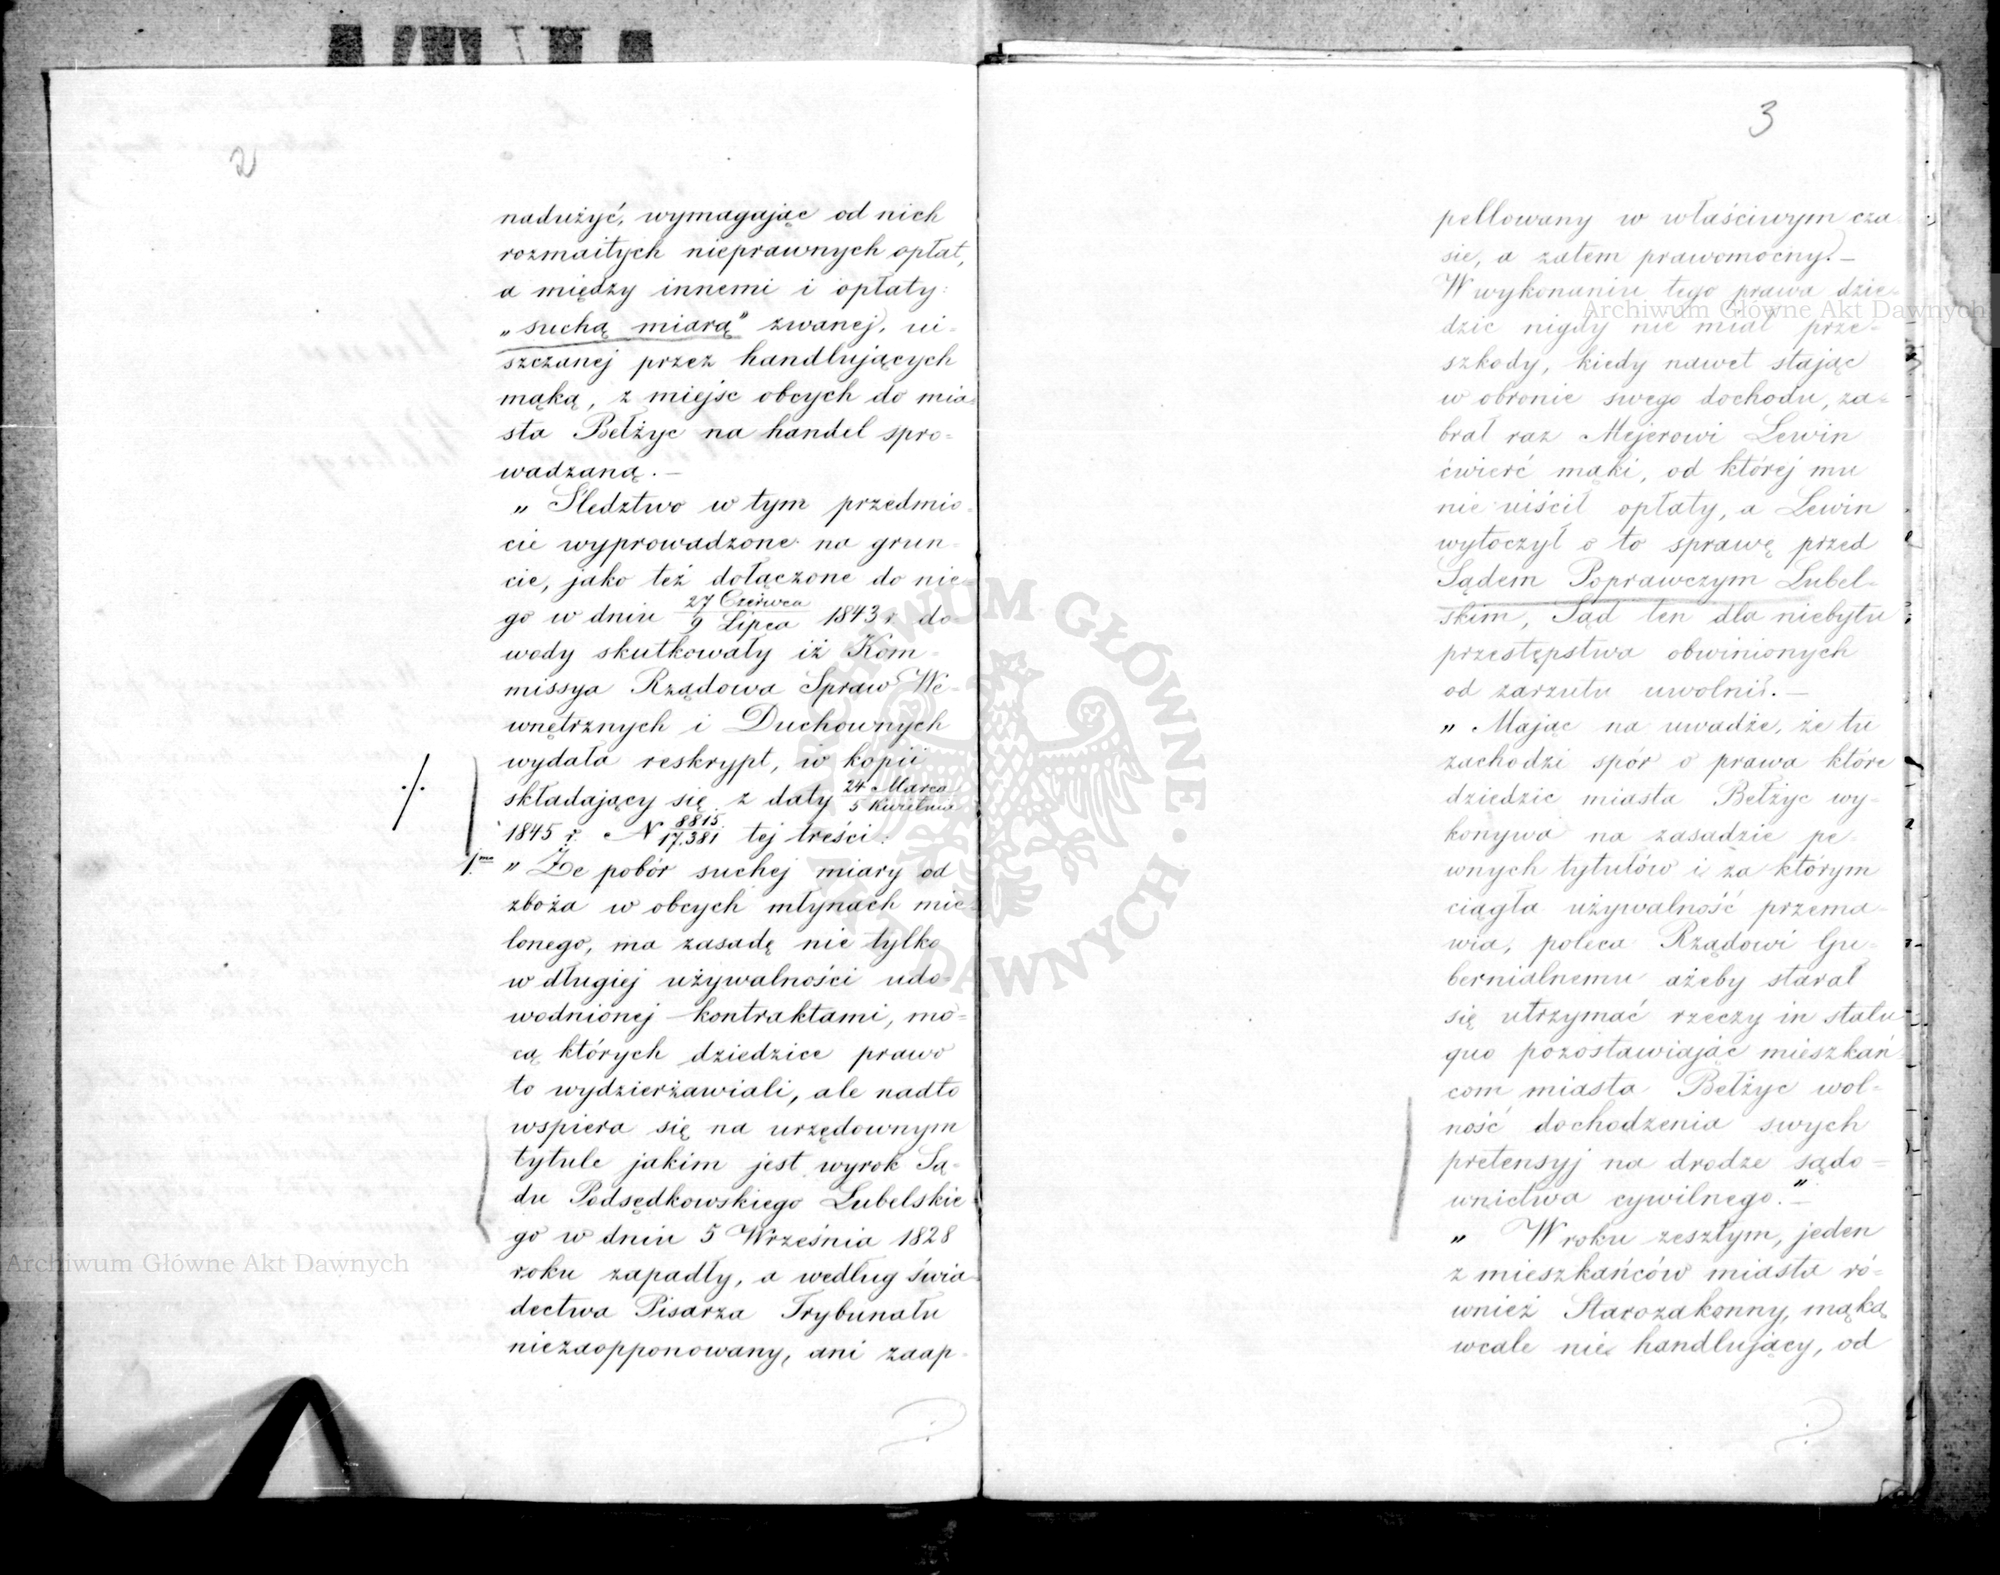 2
nadużyć, wymagając od nich
rozmaitych nieprawnych opłat,
a między innemi i opłaty:
„suchą miarą" zwanej, ui-
szczanej przez handlujących
mąką, z miejsc obcych do mia-
sta Bełżyc na handel spro-
wadzaną. —
„ Śledztwo w tym przedmio-
cie wyprowadzone na grun-
cie, jako też dołączone do nie-
go w dniu 27 Czerwca / 9 Lipca 1843 r do-
wody skutkowały iż Kom-
missya Rządowa Spraw We-
wnętrznych i Duchownych
wydała reskrypt, w kopii
składający się z daty 24 Marca / 5 Kwietnia
1845 r. N 8815 / 17.381 tej treści:
1mo „ Że pobór suchej miary od
zboża w obcych młynach mie-
lonego, ma zasadę nie tylko
w długiej używalności udo-
wodnionej kontraktami, mo-
cą których dziedzice prawo
to wydzierżawiali, ale nadto
wspiera się na urzędownym
tytule jakim jest wyrok Są-
du Podsędkowskiego Lubelskie-
go w dniu 5 Września 1828
roku zapadły, a według świa-
dectwa Pisarza Trybunału
niezaopponowany, ani zaap-
3
pellowany w właściwym cza-
sie, a zatem prawomocny. —
W wykonaniu tego prawa dzie-
dzic nigdy nie miał prze-
szkody, kiedy nawet stając
w obronie swego dochodu, za-
brał raz Mejerowi Lewin
ćwierć mąki, od której mu
nie uiścił opłaty, a Lewin
wytoczył o to sprawę przed
Sądem Poprawczym Lubel-
skim, Sąd ten dla niebytu
przestępstwa obwinionych
od zarzutu uwolnił. —
„ Mając na uwadze, że tu
zachodzi spór o prawa które
dziedzic miasta Bełżyc wy-
konywa na zasadzie pe-
wnych tytułów i za którym
ciągła używalność przema-
wia, poleca Rządowi Gu-
bernialnemu ażeby starał
się utrzymać rzeczy in statu
quo pozostawiając mieszkań-
com miasta Bełżyc wol-
ność dochodzenia swych
pretensyj na drodze sądo-
wnictwa cywilnego." —
„ W roku zeszłym, jeden
z mieszkańców miasta ró-
wnież Starozakonny, mąką
wcale nie handlujący, od
Archiwum Główne Akt Dawnych
Archiwum Główne Akt Dawnych
ARCHIWUM GŁÓWNE AKT DAWNYCH